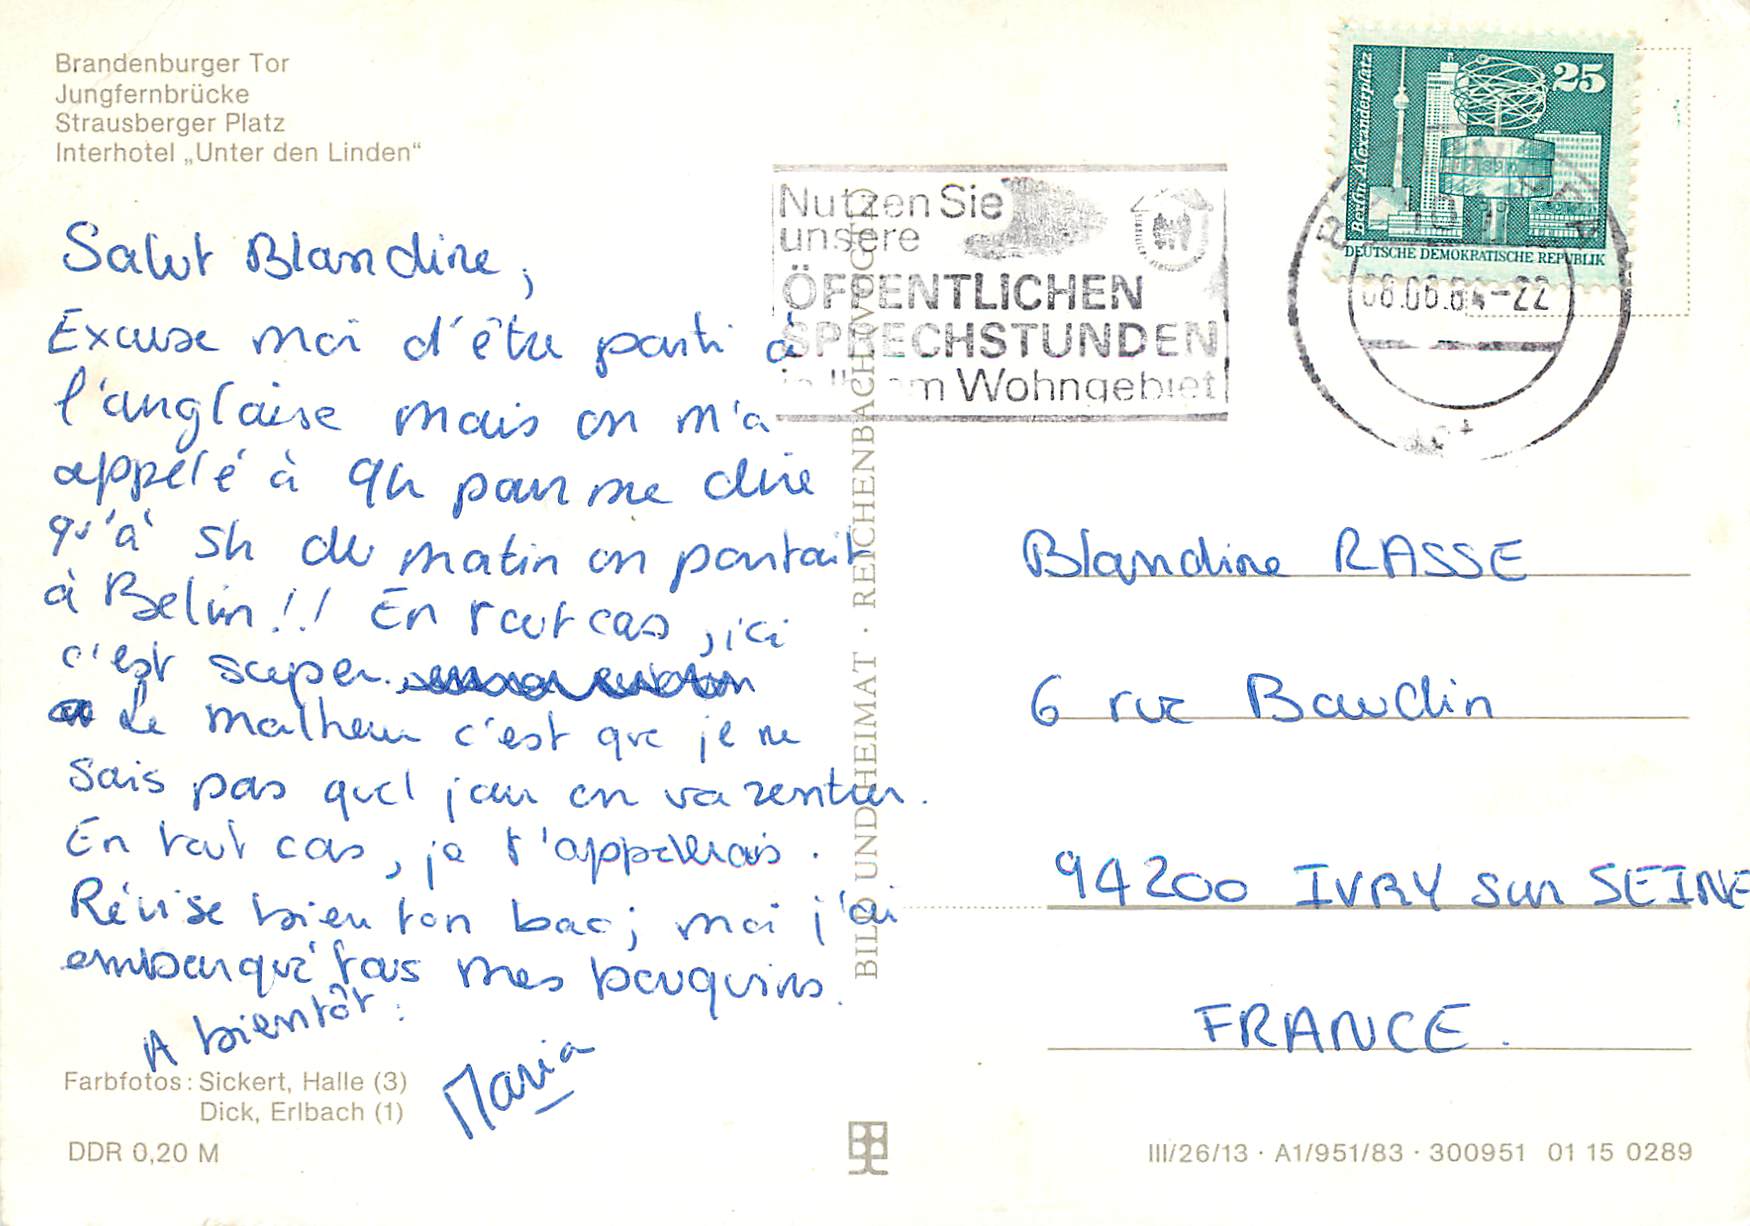 Brandenburger Tor
Jungfernbrücke
Strausberger Platz
Interhotel „Unter den Linden“
Salut Blandine,
Excuse moi d'être parti à
l'anglaise mais on m'a
appélé à 9h pour me dire
qu'à 5h du matin on partait
à Belin!! En tout cas, ici
c'est super.
Le malheur c'est que je ne
sais pas quel jour on va rentrer.
En tout cas, je t'appellerais.
Révise bien ton bac; moi j'ai
embarqué tous mes bouquins.
A bientôt:
Maria
Farbfotos: Sickert, Halle (3)
Dick, Erlbach (1)
DDR 0,20 M
BILD UND HEIMAT · REICHENBACH (VOGTL)
Nutzen Sie
unsere
ÖFFENTLICHEN
SPRECHSTUNDEN
in Ihrem Wohngebiet
25
Berlin, Alexanderplatz
DEUTSCHE DEMOKRATISCHE REPUBLIK
08.06.84-22
Blandine RASSE
6 rue Baudin
94200 IVRY sur SEINE
FRANCE.
III/26/13 · A1/951/83 · 300951 01 15 0289